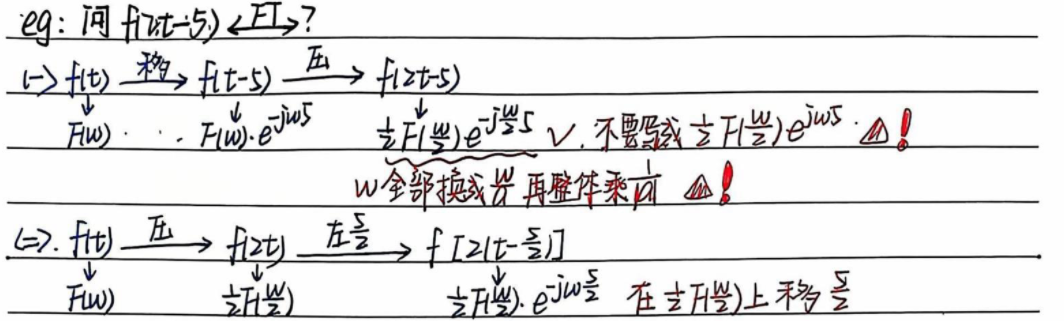 eg: 问 f(2t-5) ⟷FT ?
(一) f(t) —移→ f(t-5) —压→ f(2t-5)
↓ ↓ ↓
F(w) · · · F(w)·e^{-jw5} ½F(w/2)e^{-j(w/2)5} ✓. 不要写成 ½F(w/2)e^{jw5} · ⚠!
w全部换成 w/a 再整体乘 1/|a| ⚠!
(二). f(t) —压→ f(2t) —右5/2→ f[2(t-5/2)]
↓ ↓ ↓
F(w) ½F(w/2) ½F(w/2)·e^{-jw5/2} 在½F(w/2)上移5/2